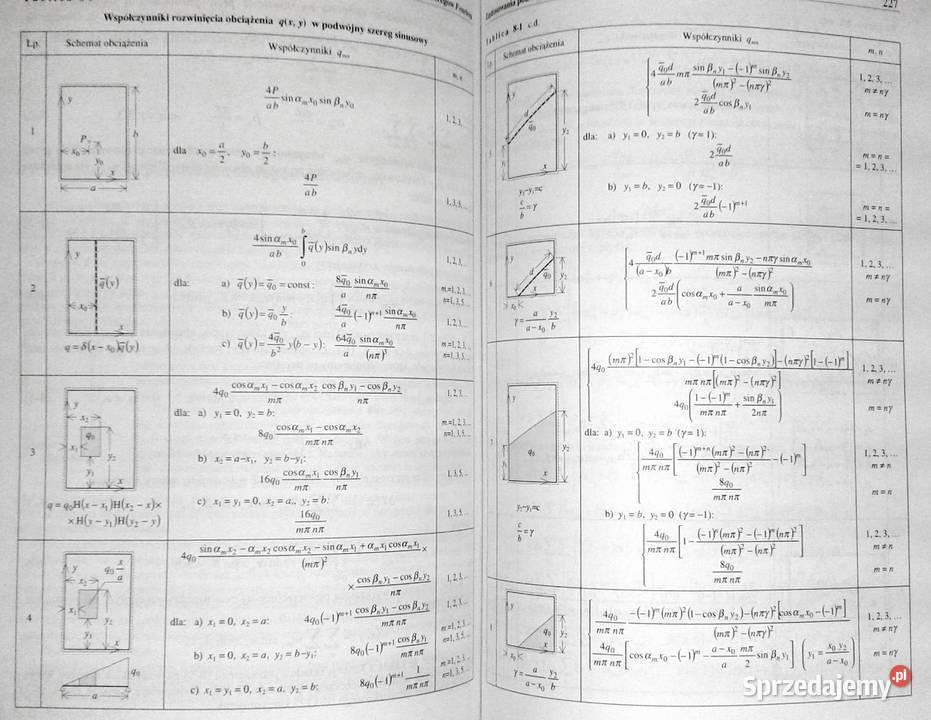 Współczynniki rozwinięcia obciążenia q(x, y) w podwójny szereg sinusowy
Lp. Schemat obciążenia Współczynniki qₘₙ m, n
1
y
P
x₀
y₀
x
b
a
4P/ab sin αₘx₀ sin βₙy₀ 1,2,3,..
dla x₀ = a/2, y₀ = b/2 :
4P/ab 1,3,5...
2
y
q̄(y)
x₀
x
q = δ(x − x₀)q̄(y)
4 sin αₘx₀/ab ∫₀ᵇ q̄(y) sin βₙy dy 1,2,3...
dla: a) q̄(y) = q̄₀ = const : 8q̄₀/a sin αₘx₀/nπ m=1,2,3.. n=1,3,5...
b) q̄(y) = q̄₀ y/b : 4q̄₀/a (−1)ⁿ⁺¹ sin αₘx₀/nπ 1,2,3...
c) q̄(y) = 4q̄₀/b² y(b − y): 64q̄₀/a sin αₘx₀/(nπ)³ m=1,2,3... n=1,3,5...
3
y
x₂
q₀
x₁
y₁
y₂
x
q = q₀H(x − x₁)H(x₂ − x)×
×H(y − y₁)H(y₂ − y)
4q₀ cos αₘx₁ − cos αₘx₂/mπ cos βₙy₁ − cos βₙy₂/nπ 1,2,3...
dla: a) y₁ = 0, y₂ = b:
8q₀ cos αₘx₁ − cos αₘx₂/mπ nπ m=1,2,3... n=1,3,5...
b) x₂ = a−x₁, y₂ = b−y₁:
16q₀ cos αₘx₁/mπ cos βₙy₁/nπ 1,3,5...
c) x₁ = y₁ = 0, x₂ = a,, y₂ = b:
16q₀/mπ nπ 1,3,5...
4
y
q₀ x/a
x₂
x₁
y₁
y₂
x
q₀
a
4q₀ sin αₘx₂ − αₘx₂ cos αₘx₂ − sin αₘx₁ + αₘx₁ cos αₘx₁/(mπ)² ×
× cos βₙy₁ − cos βₙy₂/nπ 1,2,3...
dla: a) x₁ = 0, x₂ = a: 4q₀(−1)ᵐ⁺¹ cos βₙy₁ − cos βₙy₂/mπ nπ 1,2,3...
b) x₁ = 0, x₂ = a, y₂ = b−y₁: 8q₀(−1)ᵐ⁺¹ cos βₙy₁/mπ nπ m=1,2,3... n=1,3,5...
c) x₁ = y₁ = 0, x₂ = a, y₂ = b: 8q₀(−1)ᵐ⁺¹ 1/mπ nπ m=1,2,3... n=1,3,5...
227
Tablica 8-1 c.d.
Schemat obciążenia Współczynniki qₘₙ m, n
y
d
q̄₀
y₂
x
y₂−y₁=c
c/b = γ
4 q̄₀d/ab mπ sin βₙy₁ − (−1)ᵐ sin βₙy₂/(mπ)² − (nπγ)² 1, 2, 3, ... m ≠ nγ
2 q̄₀d/ab cos βₙy₁ m = nγ
dla: a) y₁ = 0, y₂ = b (γ = 1):
2 q̄₀d/ab m = n = = 1, 2, 3, ...
b) y₁ = b, y₂ = 0 (γ = −1):
2 q̄₀d/ab (−1)ᵐ⁺¹ m = n = = 1, 2, 3, ...
y
d
q̄₀
y₂
x₀
x
γ = a/a−x₀ y₂/b
4 q̄₀d/(a − x₀)b (−1)ᵐ⁺¹mπ sin βₙy₂ − nπγ sin αₘx₀/(mπ)² − (nπγ)² 1, 2, 3, ... m ≠ nγ
2 q̄₀d/ab (cos αₘx₀ + a/a−x₀ sin αₘx₀/mπ) m = nγ
y
q₀
y₂
x
y₂−y₁=c
c/b = γ
4q₀ (mπ)²[1 − cos βₙy₁ − (−1)ᵐ(1 − cos βₙy₂)] − (nπγ)²[1 − (−1)ᵐ]/mπ nπ[(mπ)² − (nπγ)²] 1, 2, 3, ... m ≠ nγ
4q₀ (1 − (−1)ᵐ/mπ nπ + sin βₙy₁/2nπ) m = nγ
dla: a) y₁ = 0, y₂ = b (γ = 1):
4q₀/mπ nπ [(−1)ᵐ⁺ⁿ(mπ)² − (nπ)²/(mπ)² − (nπ)² − (−1)ᵐ] 1, 2, 3, ... m ≠ n
8q₀/mπ nπ m = n
b) y₁ = b, y₂ = 0 (γ = −1):
4q₀/mπ nπ [1 − (−1)ⁿ(mπ)² − (−1)ᵐ(nπ)²/(mπ)² − (nπ)²] 1, 2, 3, ... m ≠ n
8q₀/mπ nπ m = n
y
q₀
y₂
x₀
x
γ = a/a−x₀ y₂/b
4q₀/mπ nπ −(−1)ᵐ(mπ)²(1 − cos βₙy₂) − (nπγ)²[cos αₘx₀ − (−1)ᵐ]/(mπ)² − (nπγ)² 1, 2, 3, ... m ≠ nγ
4q₀/mπ nπ [cos αₘx₀ − (−1)ᵐ − a − x₀/a mπ/2 sin βₙy₁] (y₁ = x₀ y₂/a−x₀) m = nγ
Sprzedajemy.pl